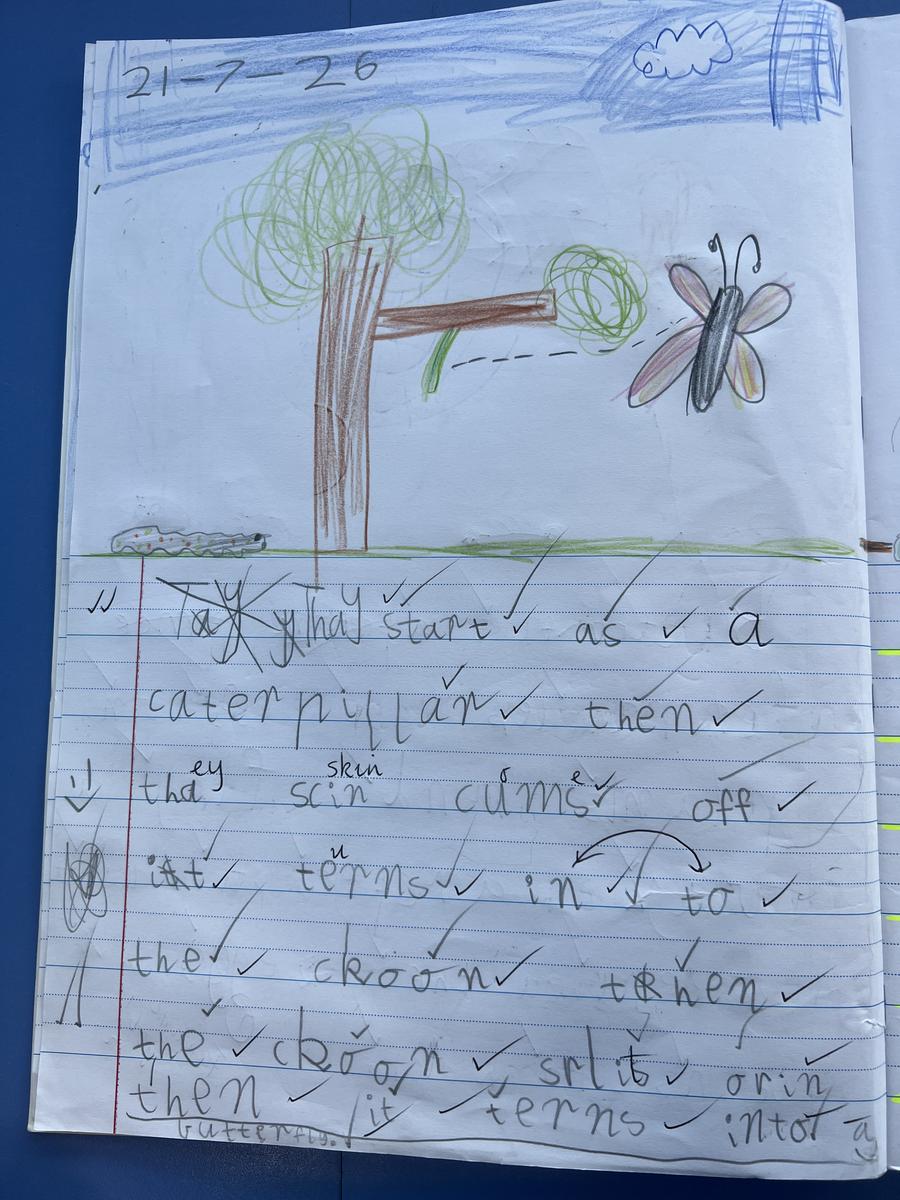 21-7-26
Thay start as a
caterpillar then
ey skin o e
tha scin cums off
u
it terns in to
the ckoon then
the ckoon split
then it terns into a
butterfly.